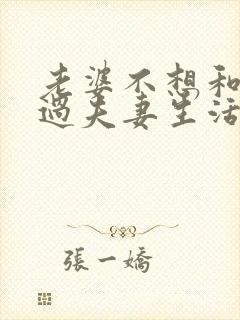 老婆不想和
過夫妻生活
張一嬌